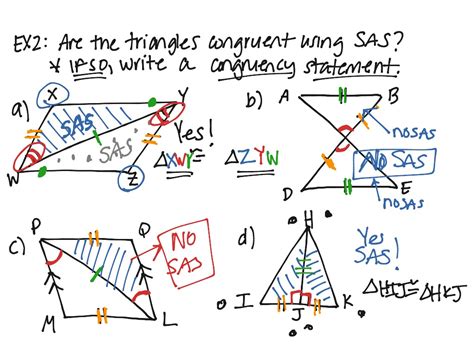 EX2: Are the triangles congruent using SAS?
* IF SO, write a congruency statement.
a) X Y
SAS
SAS
W Z
Yes!
△XWY ≅ △ZYW
b) A B
no SAS
NO SAS
D E
no SAS
c) P Q
NO
SAS
M L
d) H
I J K
Yes
SAS!
△HIJ ≅ △HKJ